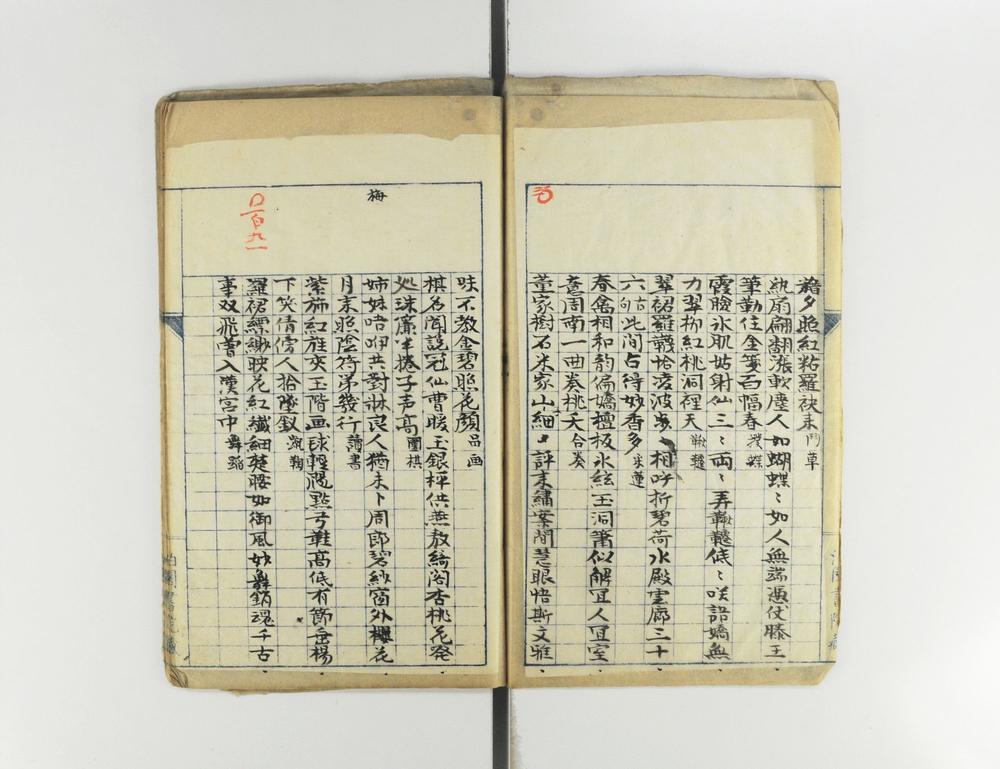 夕照紅粘羅袂来 鬥草
紈扇翩翻漲軟塵人如蝴蝶〻如人無端憑仗滕王
筆勤住金箋百幅春 撲蝶
霞臉氷肌姑射仙三〻両〻弄鞦韆低〻咲語嬌無
力翠柳紅桃洞裡天 鞦韆
翠裙羅韈恰凌波 相呼折碧荷水殿雲廊三十
六 此間占得妙香多 采蓮
春禽相和韵偏嬌檀板氷絃玉洞簫似解宜人宜室
意周南一曲奏桃夭 合奏
董家樹石米家山細〻評来繡案間慧眼悟斯文雅
味不教金碧照花顔 品画
棋名聞説冠仙曹暖玉銀枰供燕敖綺閣杏桃花発
処珠簾半捲子声高 圍棋
姉妹唔咿共對牀良人猶未卜周郎碧紗窗外櫻花
月来照陰符第幾行 讀書
紫施紅旌夾玉階画毬輕颺點弓鞋高低有節垂楊
下笑倩傍人拾墜釵 蹴鞠
羅裙縹緲映花紅纖細楚腰如御風妙舞銷魂千古
事双飛曽入漢宮中 舞蹈
梅